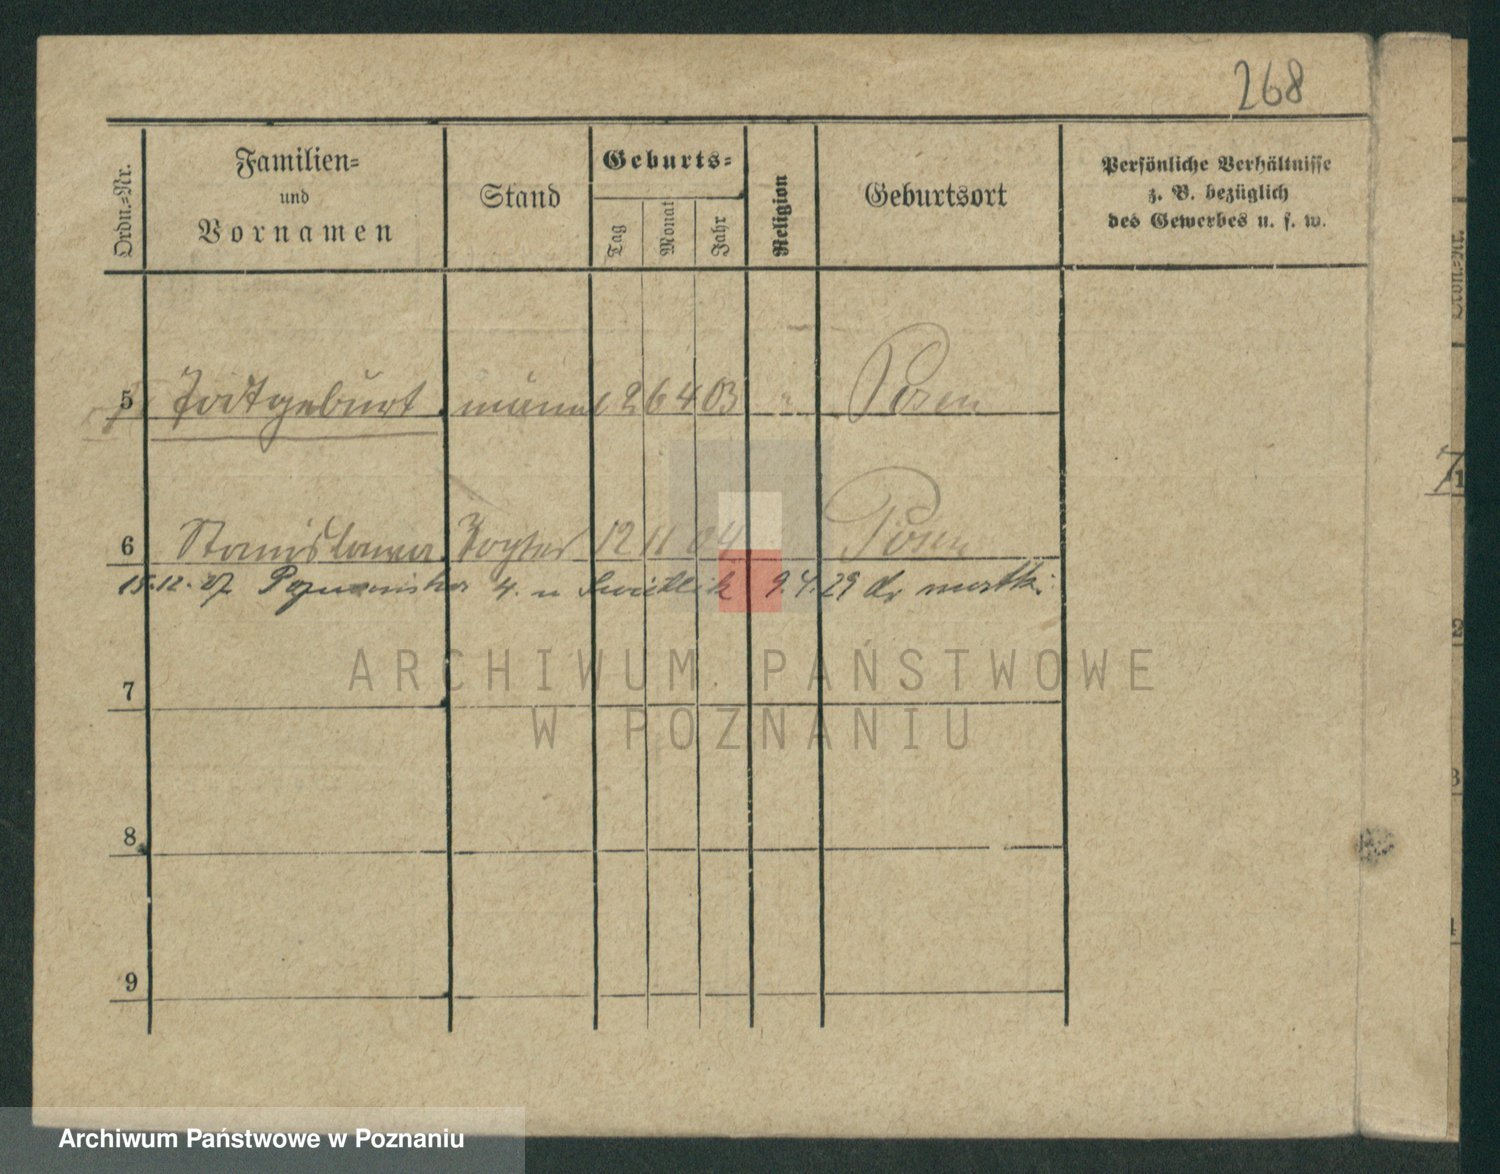 268
Ordn.-Nr.
Familien-
und
Vornamen
Stand
Geburts-
Tag
Monat
Jahr
Religion
Geburtsort
Persönliche Verhältnisse
z. B. bezüglich
des Gewerbes u. s. w.
5 Todtgeburt männl 26 4 03 Posen
6 Stanislawa Tochter 12 11 04 Posen
15.12.27 4. u 9.4.29 do matki
ARCHIWUM PAŃSTWOWE
W POZNANIU
7
8
9
Ordn.-Nr.
1
2
3
4
Archiwum Państwowe w Poznaniu